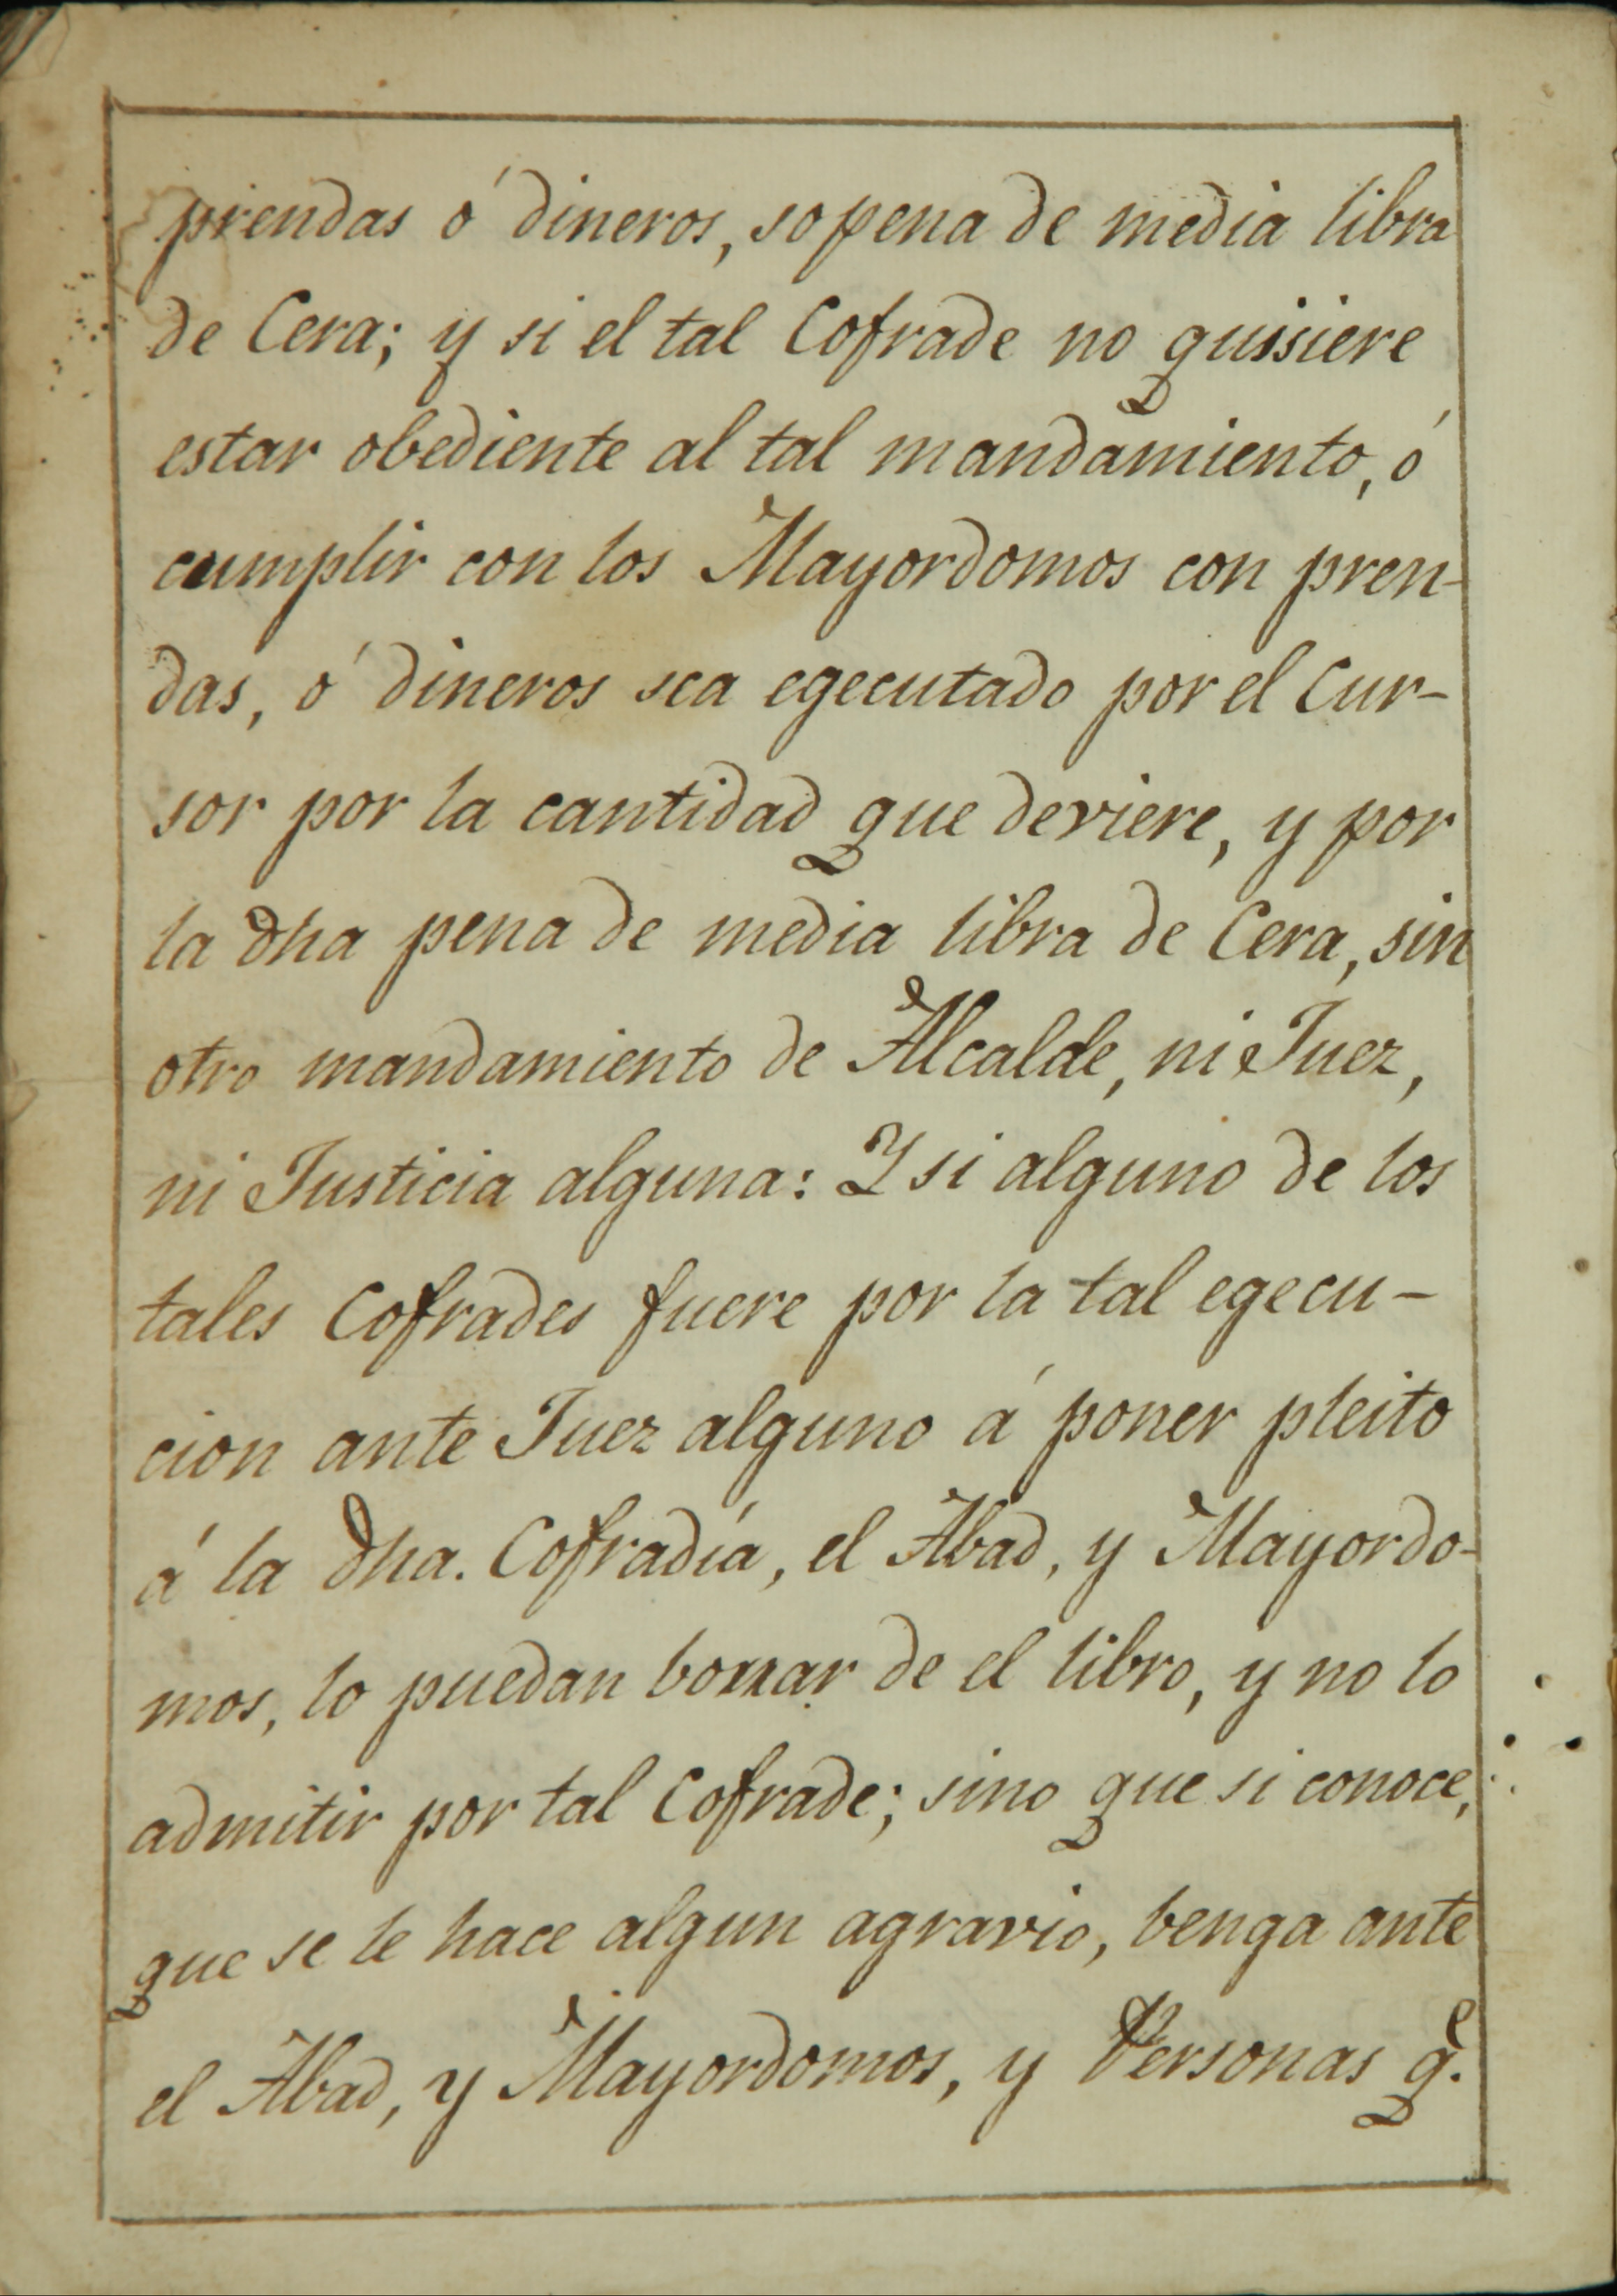 prendas ó dineros, so pena de media libra
de Cera; y si el tal Cofrade no quisiere
estar obediente al tal mandamiento, ó
cumplir con los Mayordomos con pren-
das, ó dineros sea egecutado por el Cur-
sor por la cantidad que deviere, y por
la dha pena de media libra de Cera, sin
otro mandamiento de Alcalde, ni Juez,
ni Justicia alguna: Y si alguno de los
tales Cofrades fuere por la tal egecu-
cion ante Juez alguno á poner pleito
á la dha. Cofradía, el Abad, y Mayordo-
mos, lo puedan borrar de el libro, y no lo
admitir por tal Cofrade; sino que si conoce,
que se le hace algun agravio, benga ante
el Abad, y Mayordomos, y Personas q.e